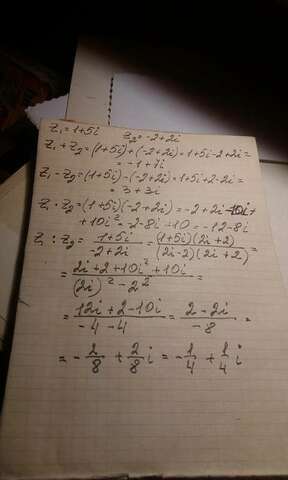 z₁ = 1+5i z₂ = -2+2i
z₁ + z₂ = (1+5i)+(-2+2i) = 1+5i-2+2i =
= -1+7i
z₁ - z₂ = (1+5i)-(-2+2i) = 1+5i+2-2i =
= 3+3i
z₁ · z₂ = (1+5i)(-2+2i) = -2+2i-10i+
+10i² = -2-8i-10 = -12-8i
z₁ : z₂ = (1+5i)/(-2+2i) = ((1+5i)(2i+2))/((2i-2)(2i+2)) =
= (2i+2+10i²+10i)/((2i)²-2²) =
= (12i+2-10i)/(-4-4) = (2-2i)/(-8) =
= -2/8 + 2/8 i = -1/4 + 1/4 i